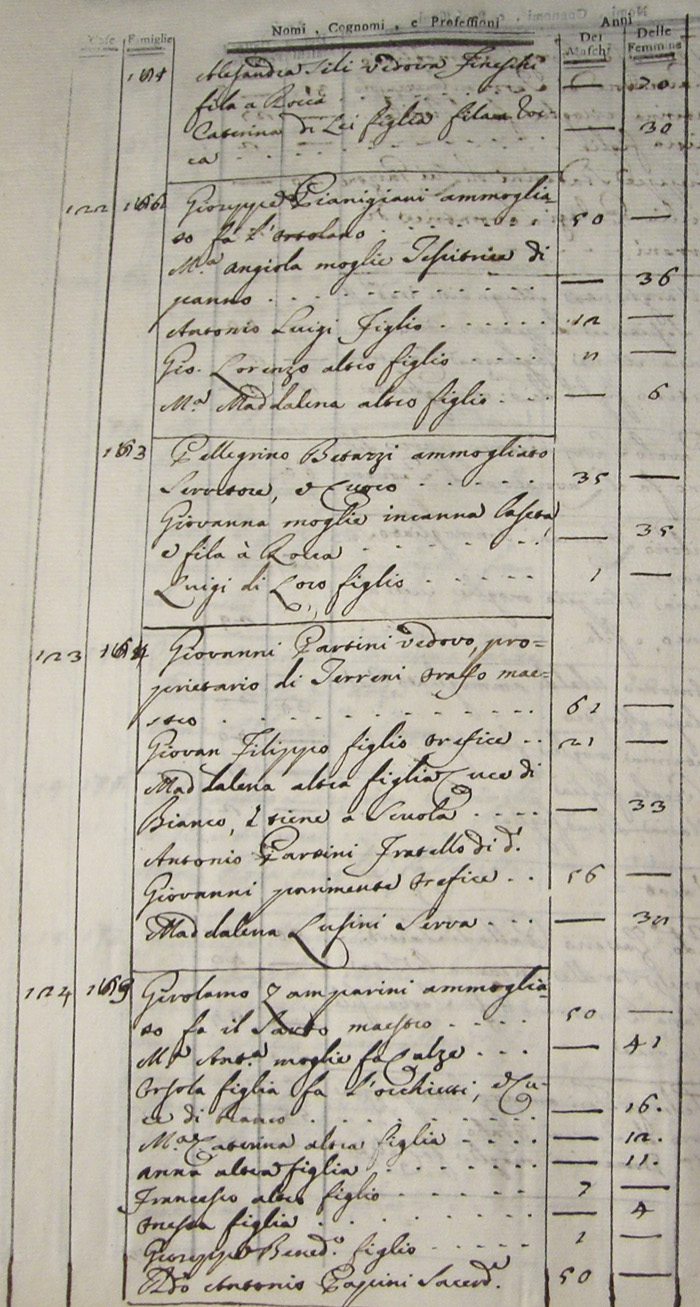 Nomi, Cognomi, e Professioni
Anni
Case
Famiglie
Dei Maschi
Delle Femmine
Alesandra Sili vedova Fineschi
fila a Rocca 70
Caterina di Lei figlia fila a Roc-
ca — 30
122 Giuseppe Gianigiani ammoglia-
to fa l'ortolano 50 —
M.a Angiola moglie Tesitrice di
panno — 36
Antonio Luigi figlio 12 —
Gio. Lorenzo altro figlio —
M.a Maddalena altro figlio — 6
Pellegrino Betarzi ammogliato
Servitore, e Cuoco 35 —
Giovanna moglie incanna
e fila à Rocca — 35
Luigi di Loro figlio 1 —
123 Giovanni Partini vedovo, pro=
prietario di Terreni orafo mae=
stro 61 —
Giovan Filippo figlio orefice 21 —
Maddalena altra figlia Cuce di
Bianco, e tiene a Scuola — 33
Antonio Partini Fratello di d.o
Giovanni parimente orefice 56 —
Maddalena Lusini Serva — 30
124 Girolamo Zamparini ammoglia-
to fa il Sarto maestro 50 —
M.a Ant.a moglie fa Calze — 41
Orsola figlia fa l'occhietti, e Cu-
ce di bianco — 16.
M.a Caterina altra figlia — 12.
anna altra figlia — 11.
Francesco altro figlio 7 —
figlia — 4
Giuseppe Bened.o figlio 1 —
Antonio Papini Sacerd.e 50 —